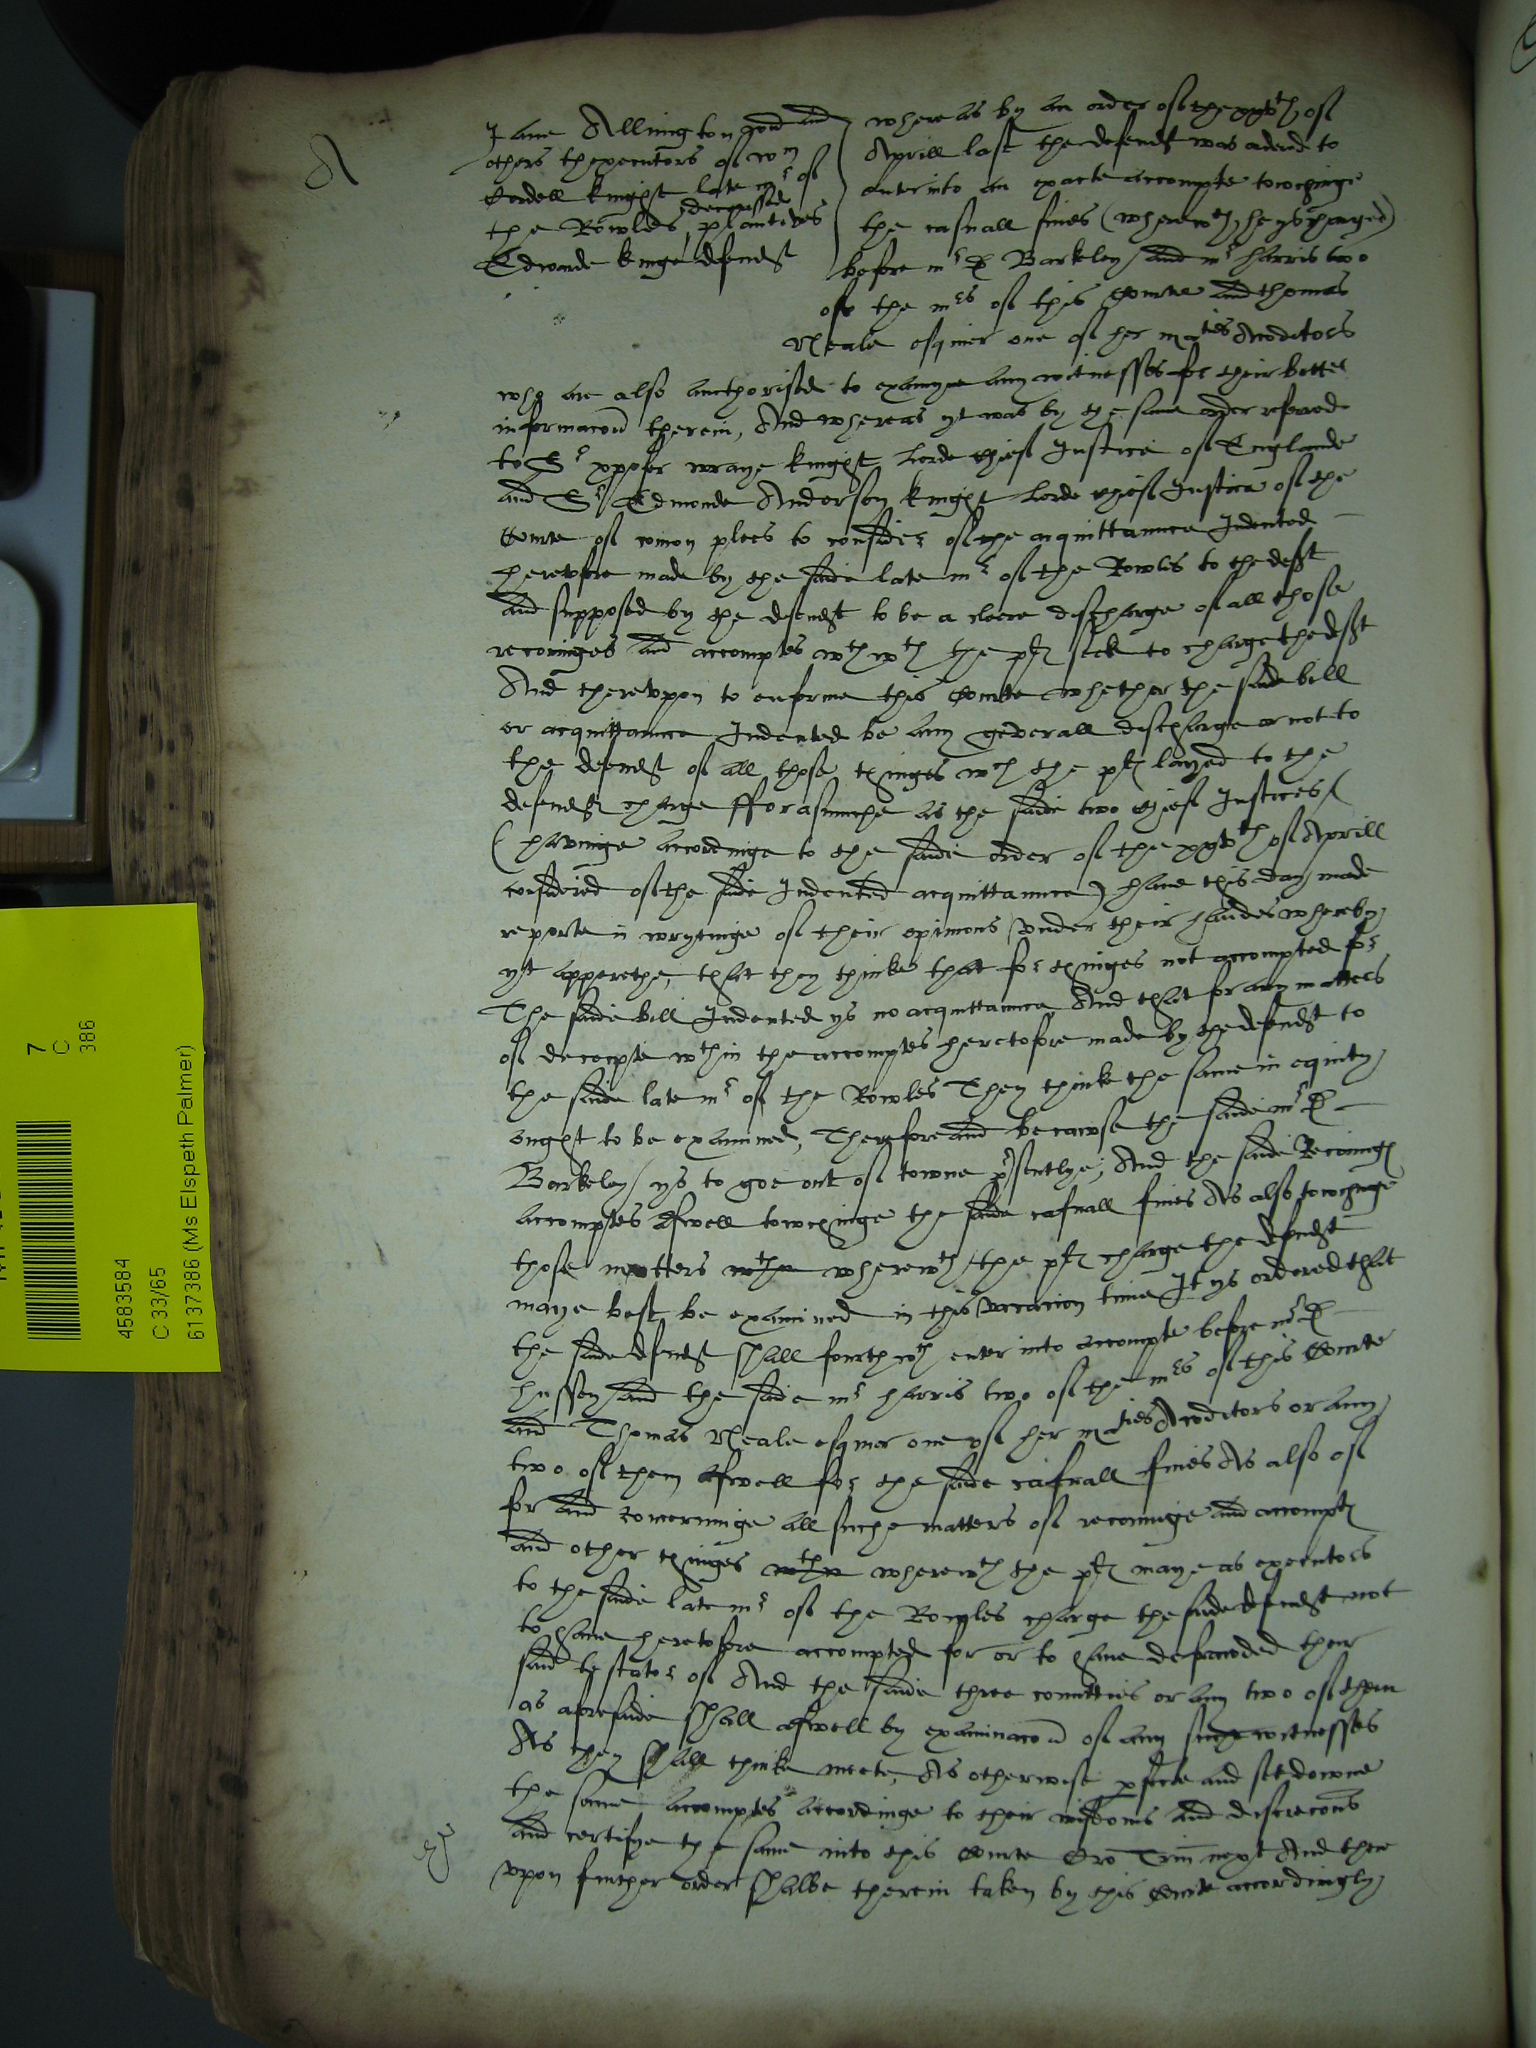 A
Jane Allington gent and
others thexecutors of Wm
Cordell knight late mr of
the Rowles deceassed plantives
Edwarde kinge defendt
whereas by an order of the xxvth of
Aprill last the defendt was ordered to
enter into an exacte accompte towchinge
the casuall fines (wherewth he ys charged)
before mr D Barkeley and mr harris two
of the mrs of this Courte and Thomas
Neale esquier one of her maties Auditors
who are also aucthorised to examyne any witnesses for their better
informacon therein, And whereas yt was by the same order referred
to Sr xpofer wraye knight Lorde Chief Justice of Englande
and Sr Edmonde Anderson knight Lorde Chief Justice of the
Courte of comon plees to consider of the acquittaunce Indented
heretofore made by the saide late mr of the Rowles to the deft
and supposed by the defendt to be a cleere discharge of all those
reconinges and accomptes wth wch the pltes seek to charge the deft
And therevpon to enforme this Courte whether the saide bill
or acquittaunce Indented be any generall discharge or not to
the defendt of all those thinges wch the pltes layed to the
defendtes charge fforasmuche as the saide two Chief Justices
(havinge accordinge to the saide order of the xxvth of Aprill
considered of the saide Indented acquittaunce) have this day made
reporte in wrytinge of their opinions vnder their handes whereby
yt apperethe, that they thinke that for thinges not accompted for
The saide bill Indented ys no acquittaunce And that for any matters
of deceipte wthin the accomptes heretofore made by the defendt to
the saide late mr of the Rowles They thinke the same in equity
ought to be examined, Therefore and because the saide mr D
Barkeley ys to goe out of towne presently, And the saide Reconinges
accomptes aswell towchinge the saide casuall fines As also towchinge
those matters wthin wherewth the pltes charge the defendt
maye best be examined in this vacacion time It ys ordered that
the saide defendt shall fourthwth enter into accompte before mr D
hussey and the saide mr harris two of the mrs of this Courte
and Thomas Neale esquier one of her maties Auditors or any
two of them aswell for the saide casuall fines As also of
for and concerninge all suche matters of reconinge and accomptes
and other thinges wthin wherewth the pltes maye as executors
to the saide late mr of the Rowles charge the saide defendt not
to have heretofore accompted for or to have defrauded their
said testator of And the saide three comitties or any two of them
as aforesaide shall aswell by examinacon of any such witnesses
As they shall thinke meete, As otherwise perfecte and set downe
the same accomptes accordinge to their wisdoms and discrecons
and certifye the same into this Courte Cro Trin next And there
vpon further order shalbe therein taken by this Courte accordingly
7
C
386
4583584
C 33/65
6137386 (Ms Elspeth Palmer)